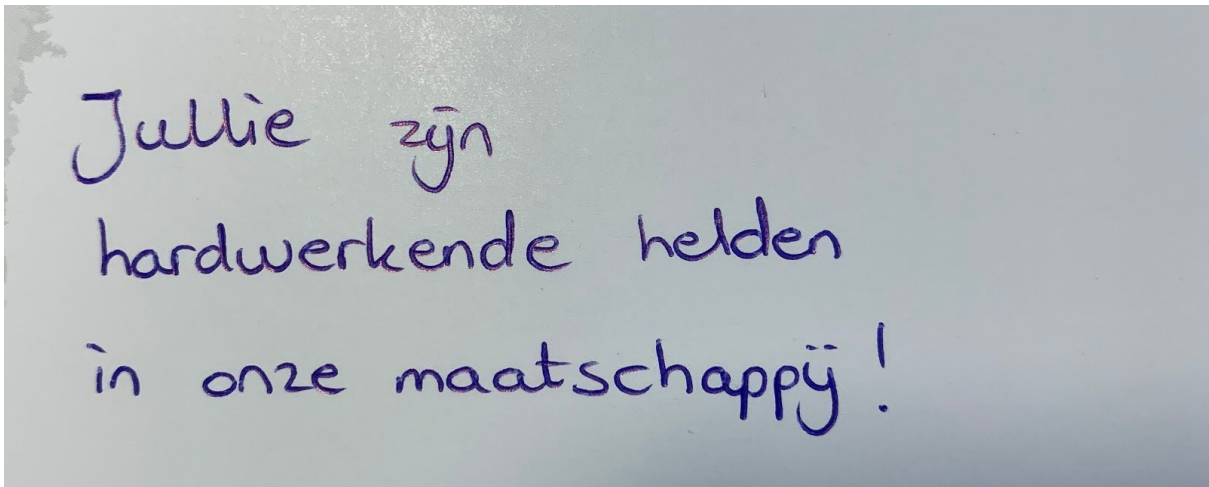 Jullie zijn
hardwerkende helden
in onze maatschappij!